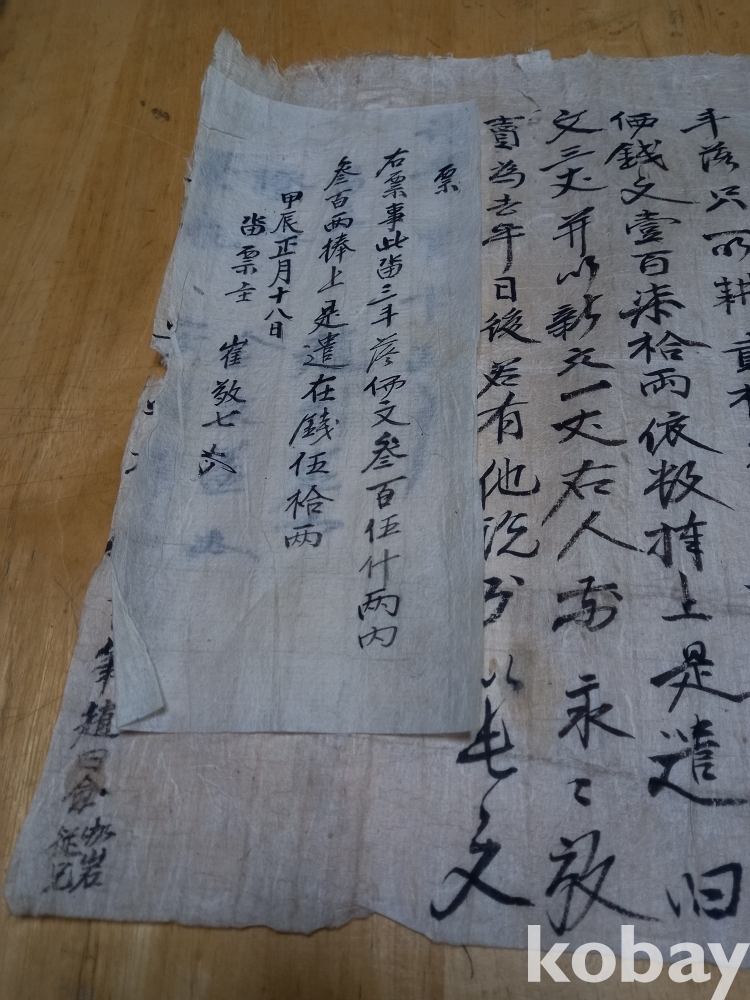 斗落只 耕
価錢文壹百柒拾兩依数捧上是遣 旧
文三丈 并以新文一丈右人前永〻放
賣為去乎日後若有他說 以此文
票
右票事此畓三斗落価文叄百伍什兩內
叄百兩捧上是遣在錢伍拾兩
甲辰正月十八日
畓票主 崔敬七
筆 趙
kobay